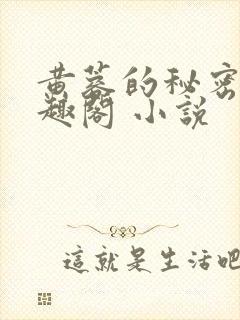 黄蓉的秘密
趣閣 小說
這就是生活吧